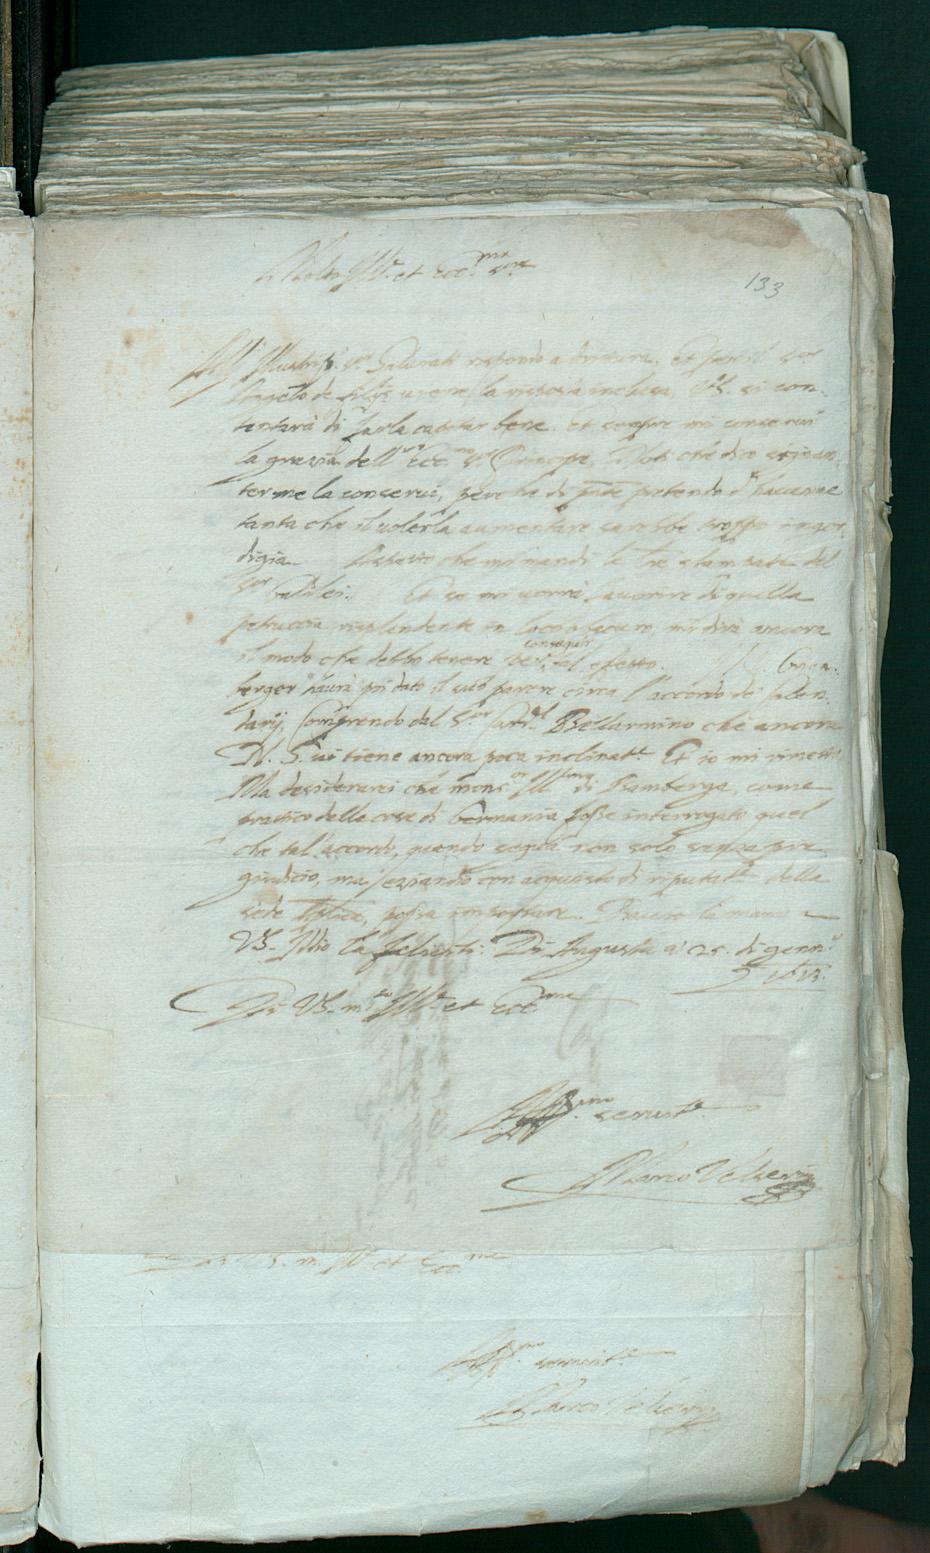 Molto Ill.re et Ecc.mo S.re
133
All' Illustriss. S.r Salviati rispondo a dirittura. Et per il S.or
Angelo de filijs viene la risposta inclusa. V.S. si con-
tentarà di farla capitar bene. et sempre mi conservi
la grazia dell' Ecc.mo S.r Principe.
termela conservi, perche di pnte pretendo d' haverne
tanta che il volerla aumentare sarebbe troppo ingor-
digia. Aspetto che mi mandi le tre stampate del
S.or Galilei. Et se mi vorrà favorire di quella
petruccia risplendente in loco oscuro, mi dirà ancora
il modo che debbo tenere
conseguir
tal effetto.
berger haurà poi dato il suo parere circa l'accordo de Calen-
darij, Comprendo dal S.or Card.l Bellarmino che ancora
N. S. vi tiene ancora poca inclinat.e Et io mi rimetto.
Ma desidererei che mons.or Ill.mo di Bamberga, come
pratico delle cose di Germania fosse interrogato quel
che tal' accordo, quando segua non solo senza pre-
giudicio, ma eziandio con acquisto di riputat.e della
sede Aplica, possa importare. Bacio le mani a
VS. Ill.
Di Augusta a' 25. di genn.o
1613.
Di VS. m.to Ill.re et Ecc.ma
Aff.mo servit.e
Marco Velseri
Di V.S. m. Ill.re et Ecc.ma
Aff.mo servit.e
Marco Velseri